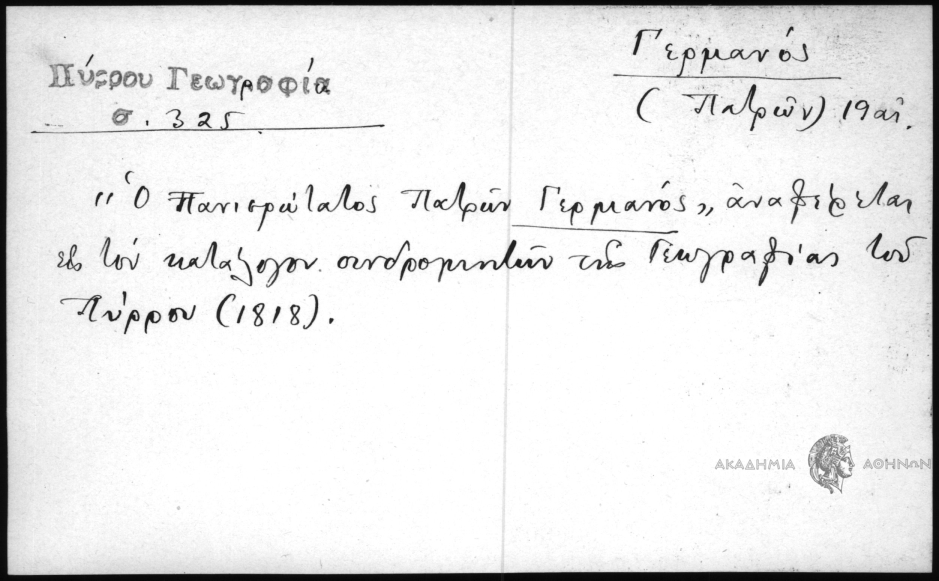 Πύρρου Γεωγραφία
σ. 325.
Γερμανός
(Πατρῶν) 19 αἰ.
"Ὁ Πανιερώτατος Πατρῶν Γερμανός„ ἀναφέρεται
εἰς τὸν κατάλογον συνδρομητῶν τῆς Γεωγραφίας τοῦ
Πύρρου (1818).
ΑΚΑΔΗΜΙΑ ΑΘΗΝΩΝ